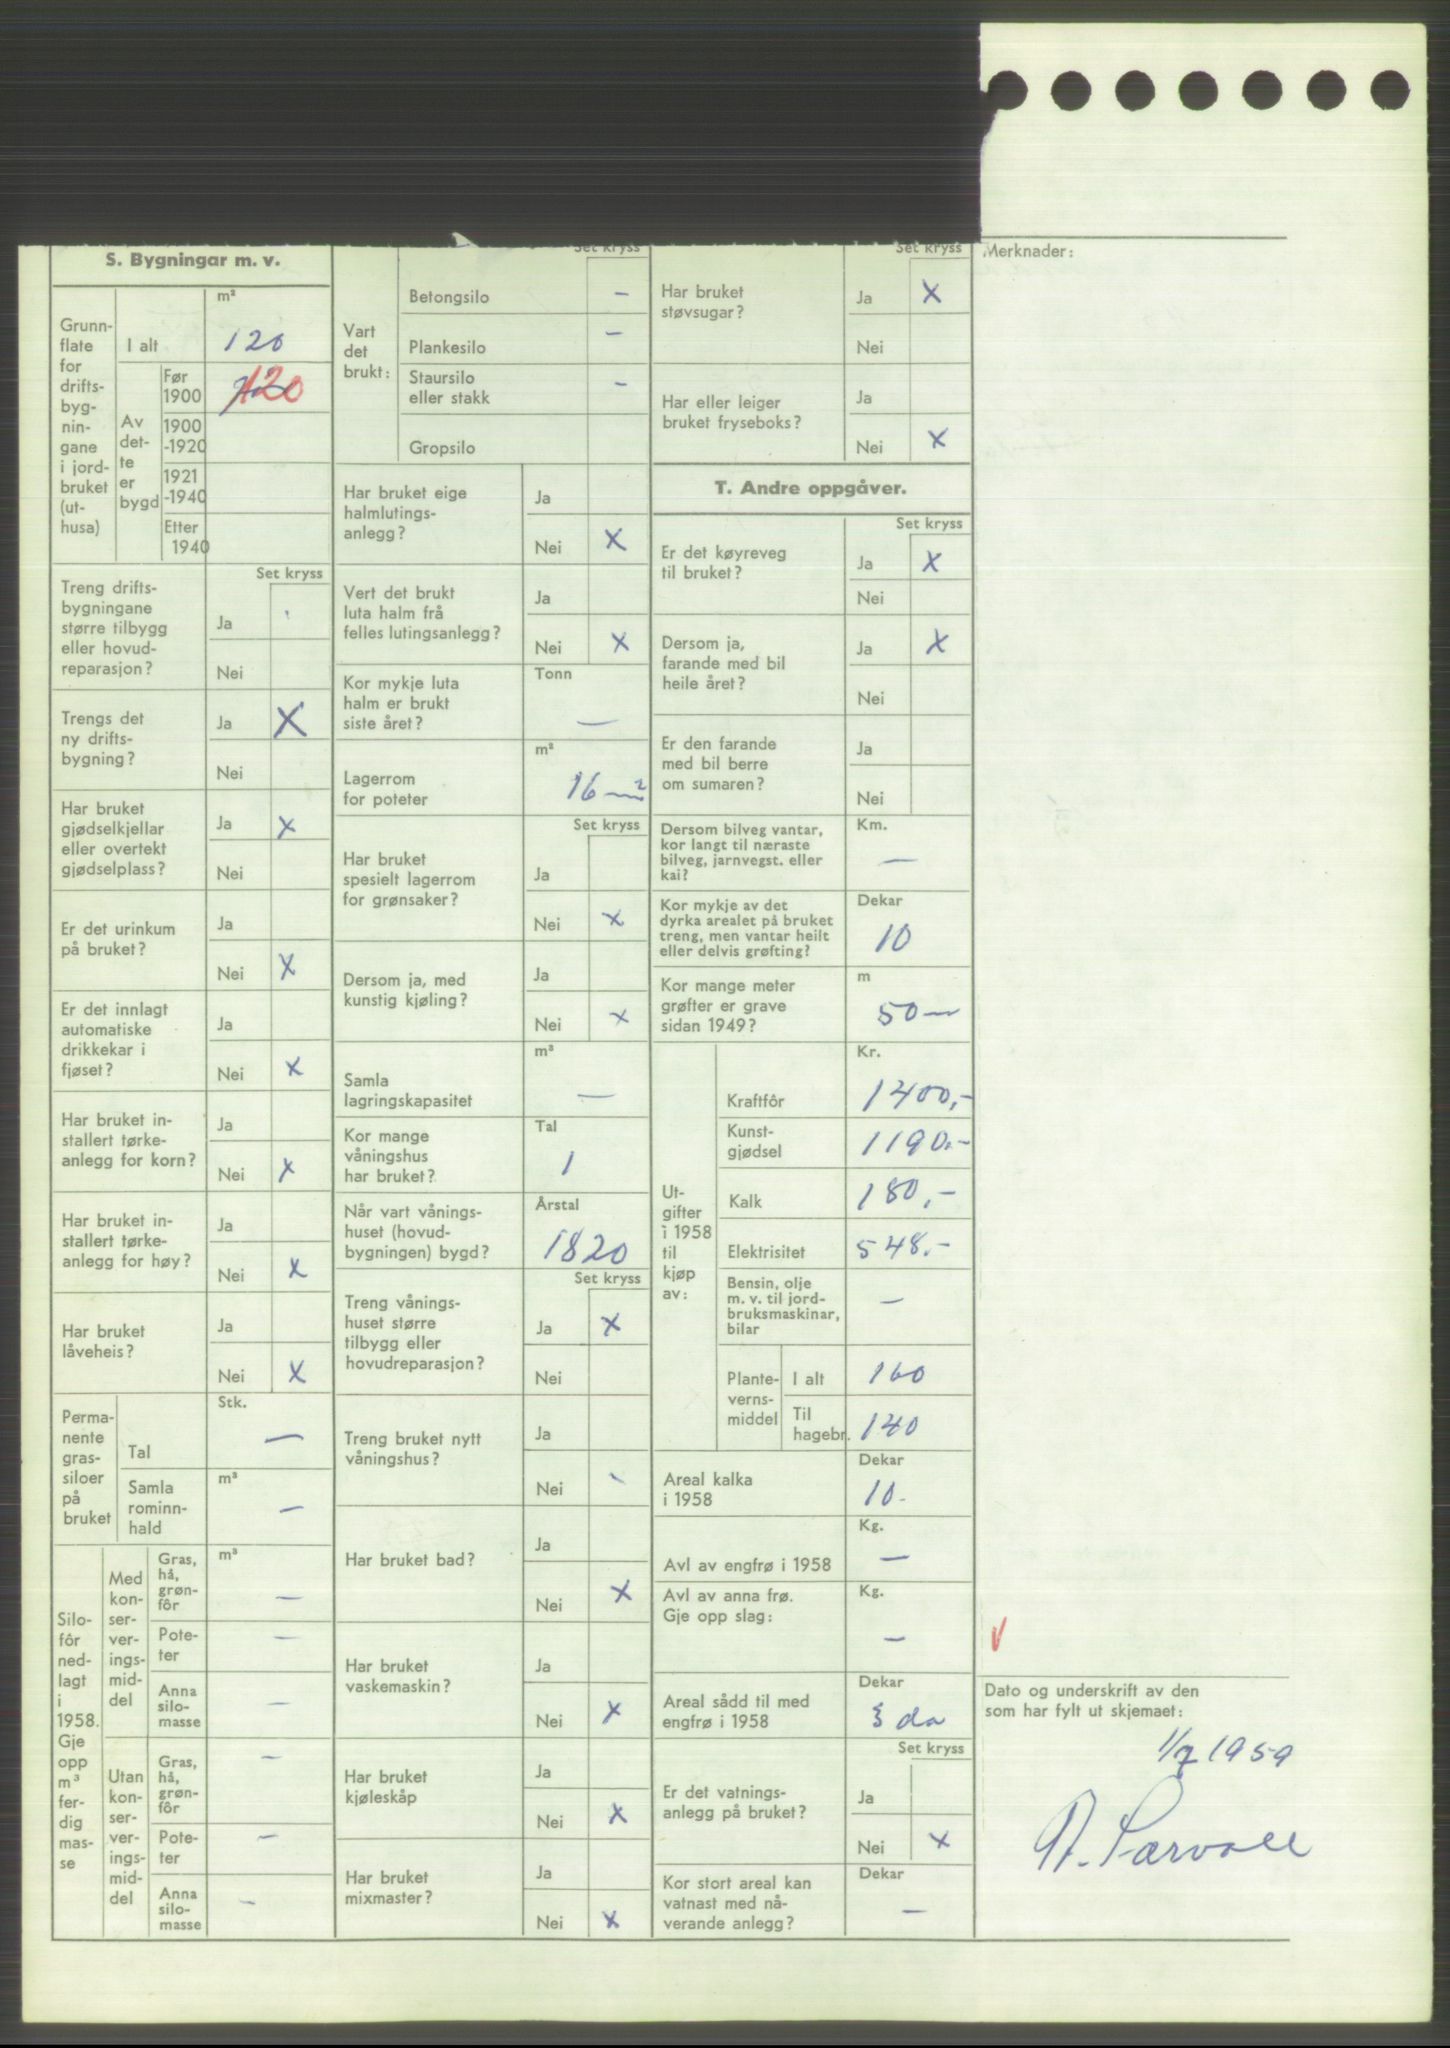 S. Bygningar m. v.
Grunn-
flate
for
drifts-
byg-
nin-
gane
i jord-
bruket
(ut-
husa)
m²
I alt 120
Av
det-
te
er
bygd
Før
1900 120
1900
-1920
1921
-1940
Etter
1940
Set kryss
Treng drifts-
bygningane
større tilbygg
eller hovud-
reparasjon?
Ja
Nei
Trengs det
ny drifts-
bygning?
Ja X
Nei
Har bruket
gjødselkjellar
eller overtekt
gjødselplass?
Ja X
Nei
Er det urinkum
på bruket?
Ja
Nei X
Er det innlagt
automatiske
drikkekar i
fjøset?
Ja
Nei X
Har bruket in-
stallert tørke-
anlegg for korn?
Ja
Nei X
Har bruket in-
stallert tørke-
anlegg for høy?
Ja
Nei X
Har bruket
låveheis?
Ja
Nei X
Perma-
nente
gras-
siloer
på
bruket
Stk.
Tal —
Samla
rominn-
hald
m³
—
Silo-
fôr
ned-
lagt
i
1958.
Gje
opp
m³
fer-
dig
mas-
se
Med
kon-
ser-
ver-
ings-
mid-
del
Gras,
hå,
grøn-
fôr
m³
—
Pote-
ter —
Anna
silo-
masse —
Utan
kon-
ser-
ver-
ings-
mid-
del
Gras,
hå,
grøn-
fôr
—
Pote-
ter —
Anna
silo-
masse —
Set kryss
Vart
det
brukt:
Betongsilo —
Plankesilo —
Staursilo
eller stakk —
Gropsilo
Har bruket eige
halmlutings-
anlegg?
Ja
Nei X
Vert det brukt
luta halm frå
felles lutingsanlegg?
Ja
Nei X
Kor mykje luta
halm er brukt
siste året?
Tonn
—
Lagerrom
for poteter
m²
16 m²
Set kryss
Har bruket
spesielt lagerrom
for grønsaker?
Ja
Nei X
Dersom ja, med
kunstig kjøling?
Ja
Nei X
Samla
lagringskapasitet
m³
—
Kor mange
våningshus
har bruket?
Tal
1
Når vart vånings-
huset (hovud-
bygningen) bygd?
Årstal
1820
Set kryss
Treng vånings-
huset større
tilbygg eller
hovudreparasjon?
Ja X
Nei
Treng bruket nytt
våningshus?
Ja
Nei -
Har bruket bad?
Ja
Nei X
Har bruket
vaskemaskin?
Ja
Nei X
Har bruket
kjøleskåp
Ja
Nei X
Har bruket
mixmaster?
Ja
Nei X
Set kryss
Har bruket
støvsugar?
Ja X
Nei
Har eller leiger
bruket fryseboks?
Ja
Nei X
T. Andre oppgåver.
Set kryss
Er det køyreveg
til bruket?
Ja X
Nei
Dersom ja,
farande med bil
heile året?
Ja X
Nei
Er den farande
med bil berre
om sumaren?
Ja
Nei
Dersom bilveg vantar,
kor langt til næraste
bilveg, jarnvegst. eller
kai?
Km.
—
Kor mykje av det
dyrka arealet på bruket
treng, men vantar heilt
eller delvis grøfting?
Dekar
10
Kor mange meter
grøfter er grave
sidan 1949?
m
50 m
Ut-
gifter
i 1958
til
kjøp
av:
Kr.
Kraftfôr 1400,-
Kunst-
gjødsel 1190.-
Kalk 180,-
Elektrisitet 548.-
Bensin, olje
m. v. til jord-
bruksmaskinar,
bilar
—
Plante-
verns-
middel
I alt 160
Til
hagebr. 140
Areal kalka
i 1958
Dekar
10.
Avl av engfrø i 1958
Kg.
—
Avl av anna frø.
Gje opp slag:
Kg.
—
Areal sådd til med
engfrø i 1958
Dekar
3 da
Set kryss
Er det vatnings-
anlegg på bruket?
Ja
Nei X
Kor stort areal kan
vatnast med nå-
verande anlegg?
Dekar
—
Merknader:
V
Dato og underskrift av den
som har fylt ut skjemaet:
1/7 1959